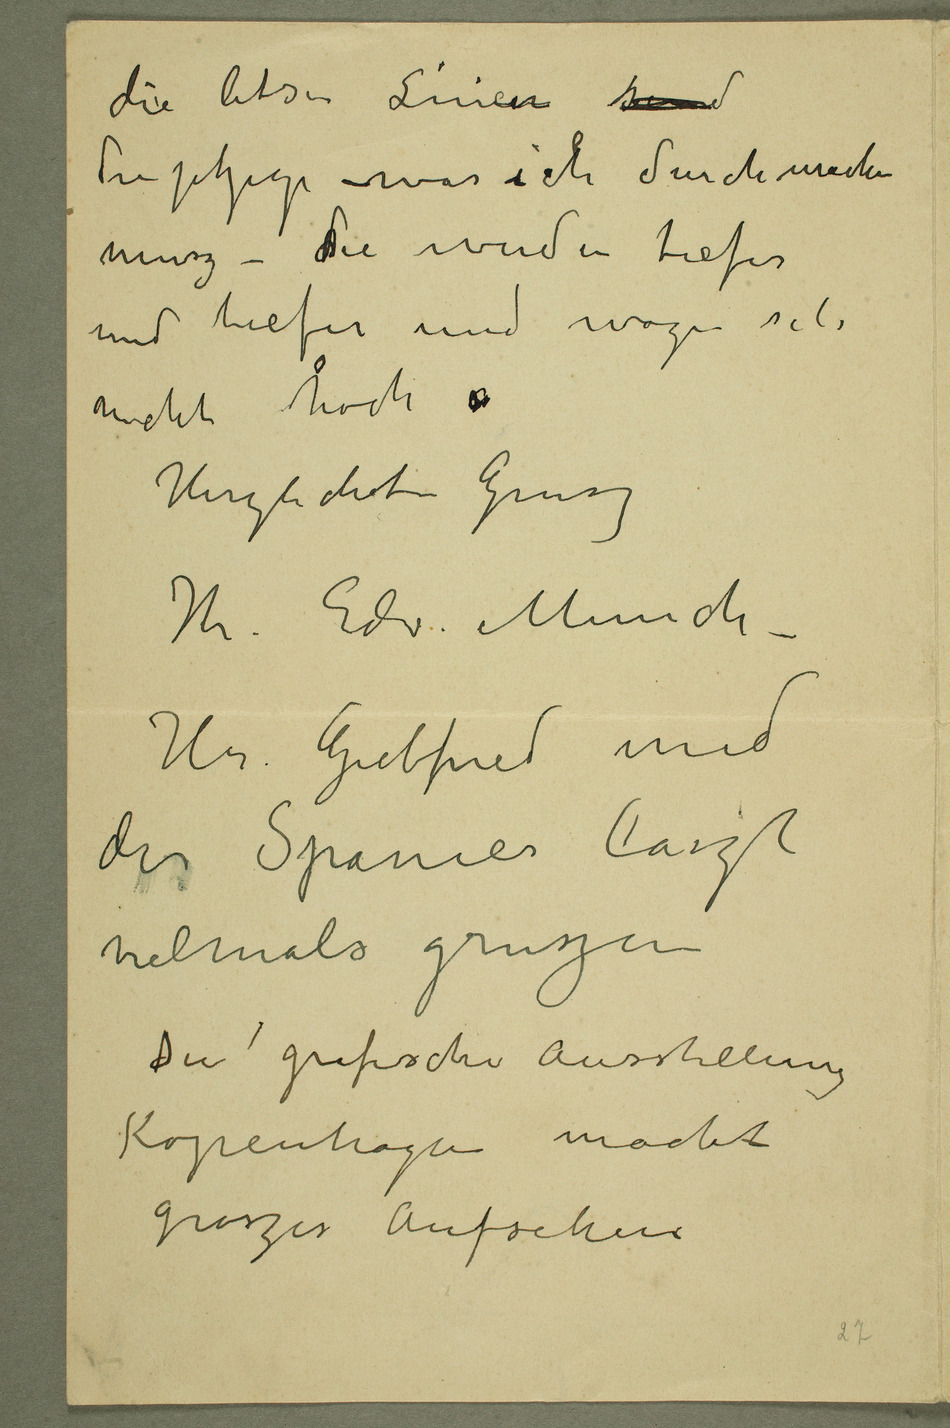 die letsen Linien s̶i̶n̶d̶
die jetzige – was ich durchmachen
musz – die werden tiefer
und tiefer und wagen sich
nicht hoch
Herzlichsten Grusz
Ihr. Edv. Munch –
Hr. Giebfried und
der Spanier laszt
vielmals gruszen
Die grafische Ausstellung
Kopenhagen macht
groszes Aufsehen
27